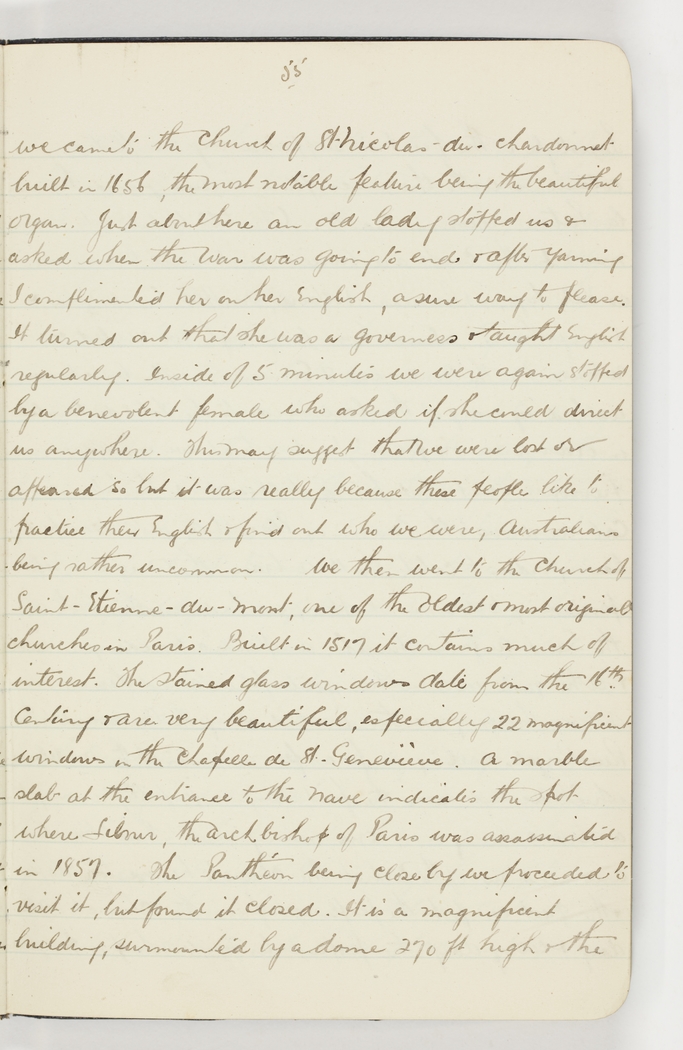 55
we came to the Church of St-Nicolas-du-chardonnet
built in 1656, the most notable feature being the beautiful
organ. Just about here an old lady stopped us &
asked when the War was going to end & after yarning
I complimented her on her English, a sure way to please.
It turned out that she was a governess & taught English
regularly. Inside of 5 minutes we were again stopped
by a benevolent female who asked if she could direct
us anywhere. This may suggest that we were lost or
appeared so but it was really because these people like to
practice their English & find out who we were, Australians
being rather uncommon. We then went to the Church of
Saint-Etienne-du-Mont, one of the oldest & most original
churches in Paris. Built in 1517 it contains much of
interest. The stained glass windows date from the 16th
Century & are very beautiful, especially 22 magnificent
windows in the Chapelle de St-Geneviève. A marble
slab at the entrance to the nave indicates the spot
where Sibour, the archbishop of Paris was assassinated
in 1857. The Panthéon being close by we proceeded to
visit it, but found it closed. It is a magnificent
building, surmounted by a dome 270 ft high & the